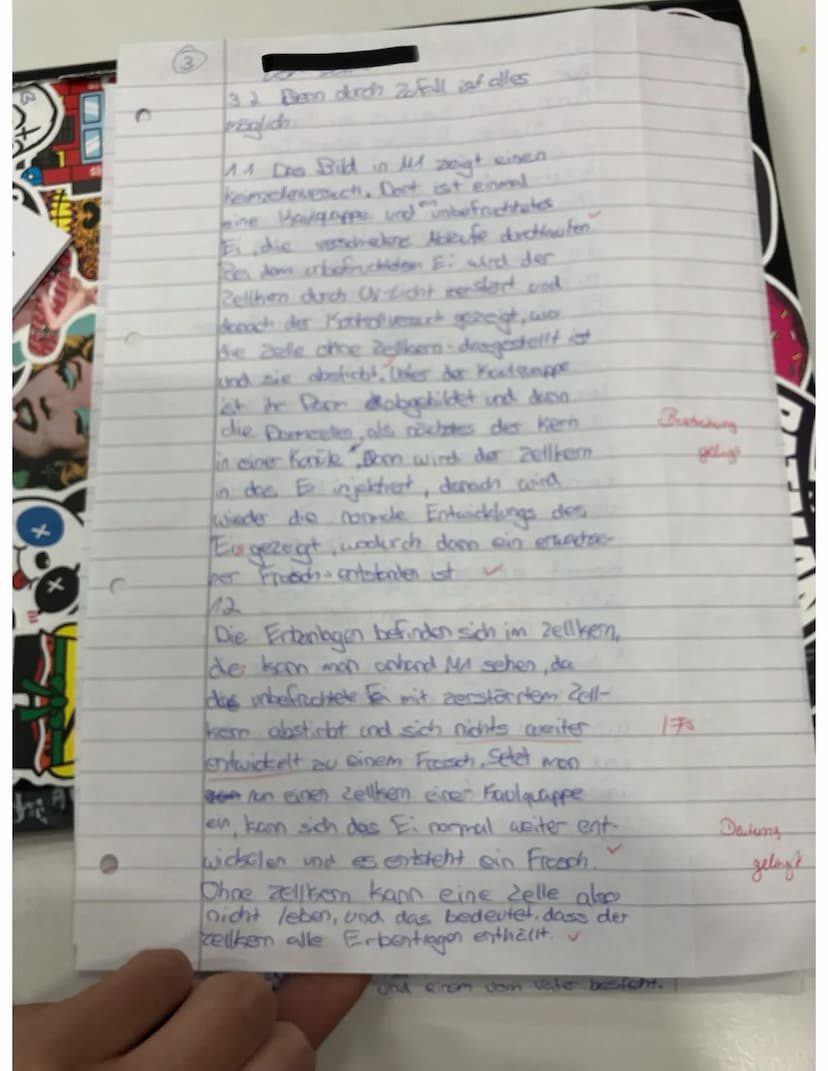 3
3.2 Denn durch Zufall ist alles
möglich.
1.1 Das Bild in M1 zeigt einen
Dort ist einmal
eine Kaulquappe und ein unbefruchtetes
Ei, die verschiedene Abläufe durchlaufen.
Bei dem unbefruchteten Ei wird der
Zellkern durch UV-Licht zerstört und
danach der Kontrollversuch gezeigt, wo
die Zelle ohne Zellkern dargestellt ist
und sie abstirbt. Unter der Kaulquappe
ist ihr Darm abgebildet und dann
die Darmzellen, als nächstes der Kern
in einer Kanüle. Dann wird der Zellkern
Beschreibung
gelingt
in das Ei injektiert, danach wird
wieder die normale Entwicklungs des
Eis gezeigt, wodurch dann ein erwachse-
ner Frosch entstanden ist
1.2
Die Erbanlagen befinden sich im Zellkern,
des kann man anhand M1 sehen, da
das unbefruchtete Ei mit zerstörtem Zell-
kern abstirbt und sich nichts weiter
entwickelt zu einem Frosch. Setzt man
nun einen Zellkern einer Kaulquappe
ein, kann sich das Ei normal weiter ent-
wickelen und es entsteht ein Frosch.
Deutung
gelingt
Ohne Zellkern kann eine Zelle also
nicht leben, und das bedeutet, dass der
Zellkern alle Erbanlagen enthällt.
und einem vom Vater besteht.